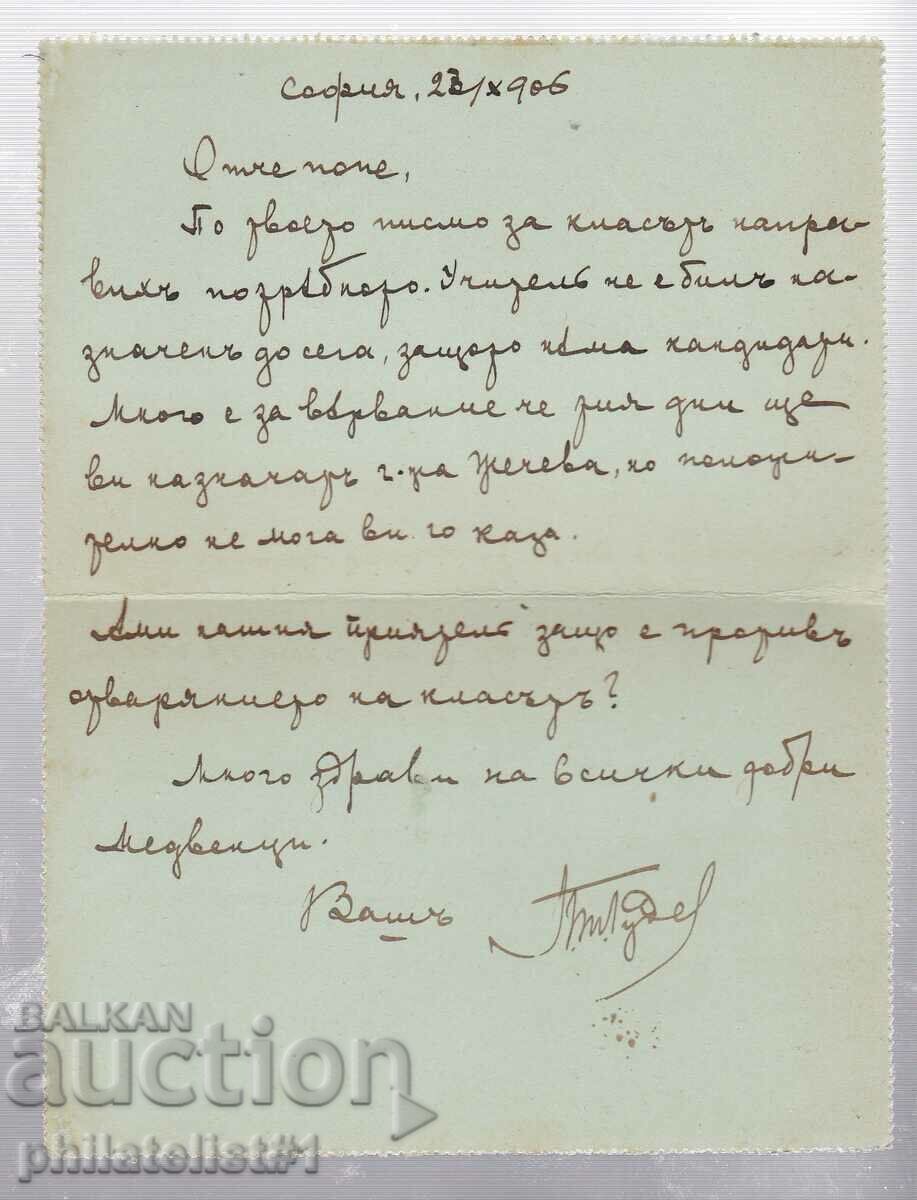 София, 23/X 906
Отче попе,
По твоето писмо за класътъ напра-
вихъ потрѣбното. Учитель не е билъ на-
значенъ до сега, защото нѣма кандидати.
Много е за вѣрвание че тия дни ще
ви назначатъ г-ца Жечева, но положи-
телно не мога ви го каза.
Ами нашия приятель защо е противъ
отварянието на класътъ?
Много здрави на всички добри
Медвенци.
Вашъ
П.Т. Гудев
BALKAN
auction
philatelist#1